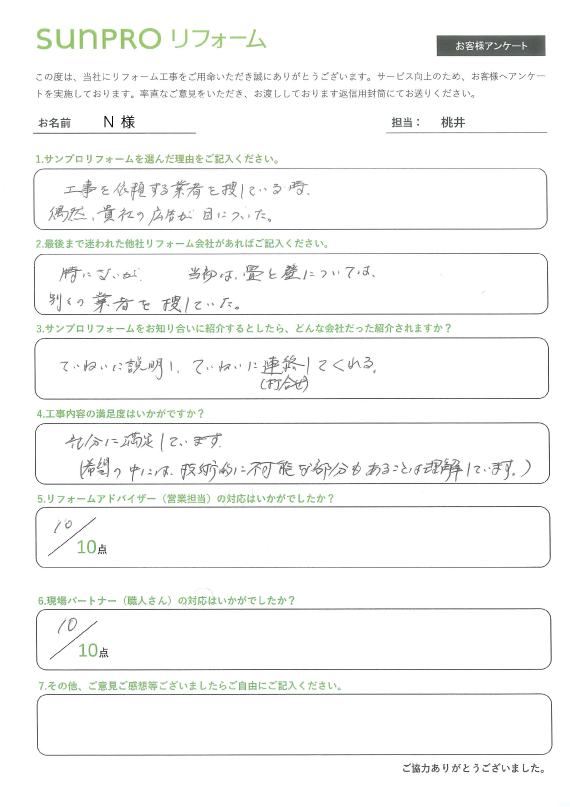 SUNPRO リフォーム
お客様アンケート
この度は、当社にリフォーム工事をご用命いただき誠にありがとうございます。サービス向上のため、お客様へアンケー
トを実施しております。率直なご意見をいただき、お渡ししております返信用封筒にてお送りください。
お名前 N 様 担当： 桃井
1.サンプロリフォームを選んだ理由をご記入ください。
工事を依頼する業者を捜している時、
偶然、貴社の広告が目についた。
2.最後まで迷われた他社リフォーム会社があればご記入ください。
特にないが、 当初は、畳と壁については、
別々の業者を捜していた。
3.サンプロリフォームをお知り合いに紹介するとしたら、どんな会社だった紹介されますか？
ていねいに説明し、ていねいに連絡してくれる。
(打合せ)
4.工事内容の満足度はいかがですか？
充分に満足しています。
(希望の中には、技術的に不可能な部分もあることは理解しています。)
5.リフォームアドバイザー（営業担当）の対応はいかがでしたか？
10
10点
6.現場パートナー（職人さん）の対応はいかがでしたか？
10
10点
7.その他、ご意見ご感想等ございましたらご自由にご記入ください。
ご協力ありがとうございました。